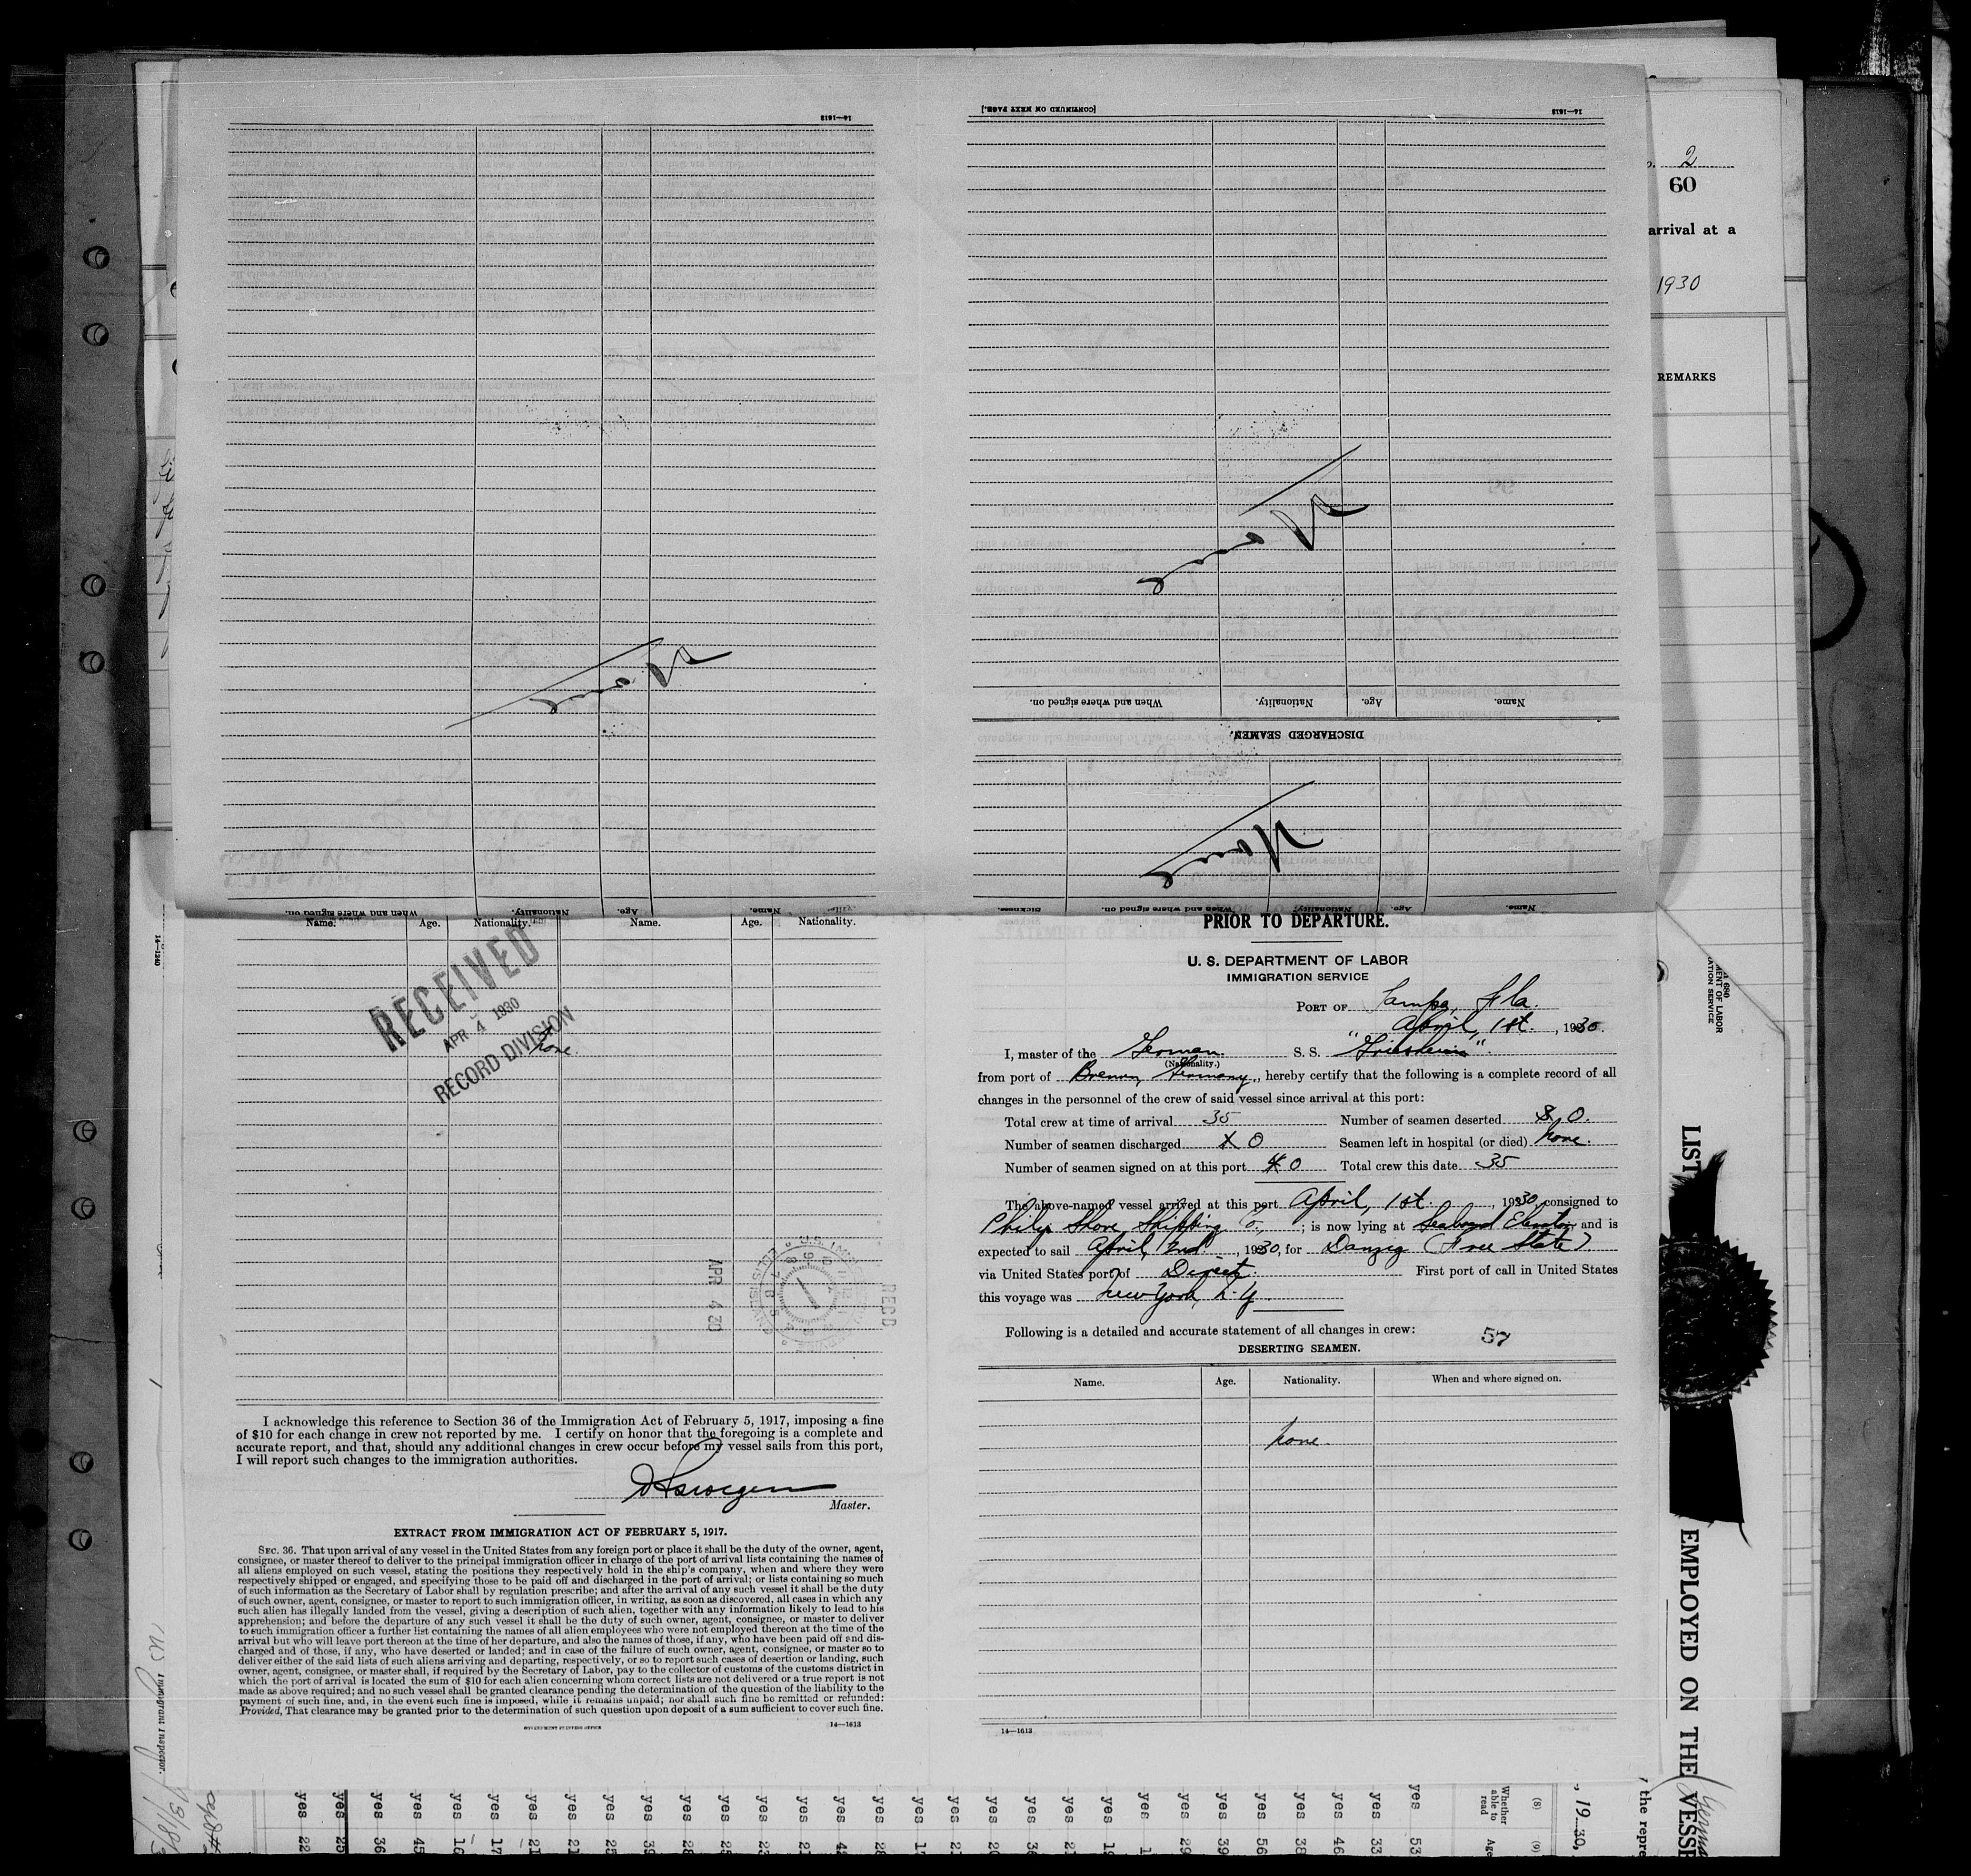 14—1613
[CONTINUED ON NEXT PAGE.]
14—1613
None
When and where signed on.
Nationality.
Age.
Name.
None
Name.
Age.
Nationality.
When and where signed on.
DISCHARGED SEAMEN.
None
Name.
Age.
Nationality.
When and where signed on.
Sickness.
2
60
arrival at a
1930
REMARKS
Name.
Age.
Nationality.
Name.
Age.
Nationality.
RECEIVED
APR 4 1930
RECORD DIVISION
none
APR 4 30
REC'D
I acknowledge this reference to Section 36 of the Immigration Act of February 5, 1917, imposing a fine
of $10 for each change in crew not reported by me. I certify on honor that the foregoing is a complete and
accurate report, and that, should any additional changes in crew occur before my vessel sails from this port,
I will report such changes to the immigration authorities.
Master.
EXTRACT FROM IMMIGRATION ACT OF FEBRUARY 5, 1917.
SEC. 36. That upon arrival of any vessel in the United States from any foreign port or place it shall be the duty of the owner, agent,
consignee, or master thereof to deliver to the principal immigration officer in charge of the port of arrival lists containing the names of
all aliens employed on such vessel, stating the positions they respectively hold in the ship's company, when and where they were
respectively shipped or engaged, and specifying those to be paid off and discharged in the port of arrival; or lists containing so much
of such information as the Secretary of Labor shall by regulation prescribe; and after the arrival of any such vessel it shall be the duty
of such owner, agent, consignee, or master to report to such immigration officer, in writing, as soon as discovered, all cases in which any
such alien has illegally landed from the vessel, giving a description of such alien, together with any information likely to lead to his
apprehension; and before the departure of any such vessel it shall be the duty of such owner, agent, consignee, or master to deliver
to such immigration officer a further list containing the names of all alien employees who were not employed thereon at the time of the
arrival but who will leave port thereon at the time of her departure, and also the names of those, if any, who have been paid off and dis-
charged and of those, if any, who have deserted or landed; and in case of the failure of such owner, agent, consignee, or master so to
deliver either of the said lists of such aliens arriving and departing, respectively, or so to report such cases of desertion or landing, such
owner, agent, consignee, or master shall, if required by the Secretary of Labor, pay to the collector of customs of the customs district in
which the port of arrival is located the sum of $10 for each alien concerning whom correct lists are not delivered or a true report is not
made as above required; and no such vessel shall be granted clearance pending the determination of the question of the liability to the
payment of such fine, and, in the event such fine is imposed, while it remains unpaid; nor shall such fine be remitted or refunded:
Provided, That clearance may be granted prior to the determination of such question upon deposit of a sum sufficient to cover such fine.
GOVERNMENT PRINTING OFFICE
14—1613
PRIOR TO DEPARTURE.
U. S. DEPARTMENT OF LABOR
IMMIGRATION SERVICE
PORT OF Tampa, Fla.
April, 1st. , 1930.
I, master of the German. S. S. "Griesheim".
(Nationality.)
from port of Bremen, Germany, hereby certify that the following is a complete record of all
changes in the personnel of the crew of said vessel since arrival at this port:
Total crew at time of arrival 35 Number of seamen deserted 0.
Number of seamen discharged 0 Seamen left in hospital (or died) none.
Number of seamen signed on at this port 0 Total crew this date 35
The above-named vessel arrived at this port April, 1st. , 1930, consigned to
Philip Shore Shipping Co., ; is now lying at Seaboard Elevator and is
expected to sail April, 2nd. , 1930, for Danzig (Free State).
via United States port of Direct. First port of call in United States
this voyage was New York, N.Y.
Following is a detailed and accurate statement of all changes in crew: 57
DESERTING SEAMEN.
Name.
Age.
Nationality.
When and where signed on.
none.
14—1613
14—1240
Immigrant Inspector.
LIST
EMPLOYED ON THE VESSE
the repre
, 1930,
(8)
(9)
Whether able to read
Age